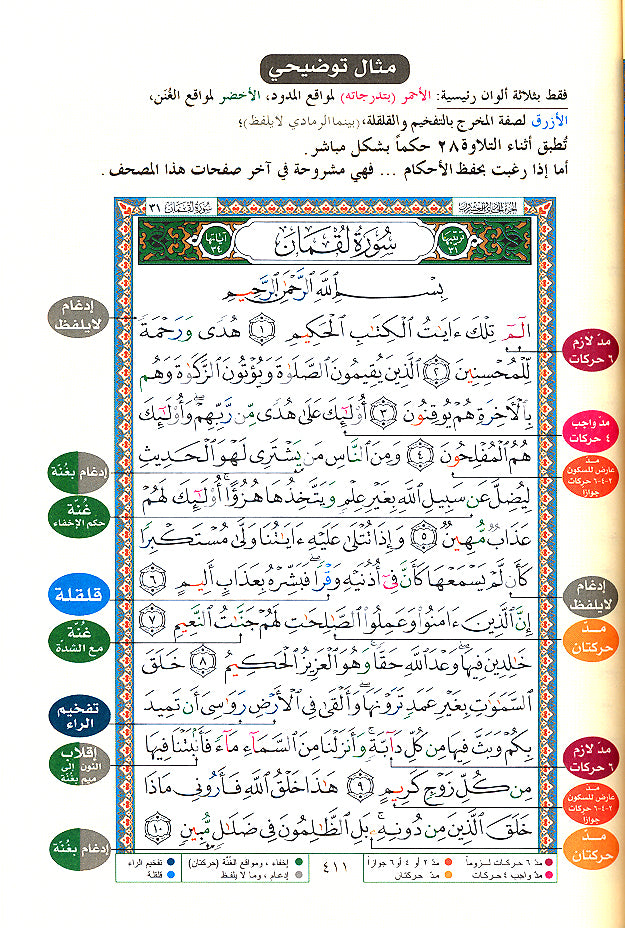 مثال توضيحي
فقط بثلاثة ألوان رئيسية: الأحمر (بتدرجاته) لمواقع المدود، الأخضر لمواقع الغُنَن،
الأزرق لصفة المخرج بالتفخيم والقلقلة، (بينما الرمادي لايلفظ)؛
تُطبق أثناء التلاوة ٢٨ حكماً بشكل مباشر.
أما إذا رغبت بحفظ الأحكام ... فهي مشروحة في آخر صفحات هذا المصحف.
سورة لقمان ٣١
ترتيبها ٣١
سُورَةُ لُقْمَانَ
آياتها ٣٤
بِسْمِ ٱللَّهِ ٱلرَّحْمَٰنِ ٱلرَّحِيمِ
الٓمٓ ۝١ تِلْكَ ءَايَٰتُ ٱلْكِتَٰبِ ٱلْحَكِيمِ ۝٢ هُدًى وَرَحْمَةً
لِّلْمُحْسِنِينَ ۝٣ ٱلَّذِينَ يُقِيمُونَ ٱلصَّلَوٰةَ وَيُؤْتُونَ ٱلزَّكَوٰةَ وَهُم
بِٱلْءَاخِرَةِ هُمْ يُوقِنُونَ ۝٤ أُو۟لَٰٓئِكَ عَلَىٰ هُدًى مِّن رَّبِّهِمْ ۖ وَأُو۟لَٰٓئِكَ
هُمُ ٱلْمُفْلِحُونَ ۝٥ وَمِنَ ٱلنَّاسِ مَن يَشْتَرِى لَهْوَ ٱلْحَدِيثِ
لِيُضِلَّ عَن سَبِيلِ ٱللَّهِ بِغَيْرِ عِلْمٍ وَيَتَّخِذَهَا هُزُوًا ۚ أُو۟لَٰٓئِكَ لَهُمْ
عَذَابٌ مُّهِينٌ ۝٦ وَإِذَا تُتْلَىٰ عَلَيْهِ ءَايَٰتُنَا وَلَّىٰ مُسْتَكْبِرًا
كَأَن لَّمْ يَسْمَعْهَا كَأَنَّ فِىٓ أُذُنَيْهِ وَقْرًا ۖ فَبَشِّرْهُ بِعَذَابٍ أَلِيمٍ ۝٧
إِنَّ ٱلَّذِينَ ءَامَنُوا۟ وَعَمِلُوا۟ ٱلصَّٰلِحَٰتِ لَهُمْ جَنَّٰتُ ٱلنَّعِيمِ ۝٨
خَٰلِدِينَ فِيهَا ۖ وَعْدَ ٱللَّهِ حَقًّا ۚ وَهُوَ ٱلْعَزِيزُ ٱلْحَكِيمُ ۝٩ خَلَقَ
ٱلسَّمَٰوَٰتِ بِغَيْرِ عَمَدٍ تَرَوْنَهَا ۖ وَأَلْقَىٰ فِى ٱلْأَرْضِ رَوَٰسِىَ أَن تَمِيدَ
بِكُمْ وَبَثَّ فِيهَا مِن كُلِّ دَآبَّةٍ ۚ وَأَنزَلْنَا مِنَ ٱلسَّمَآءِ مَآءً فَأَنۢبَتْنَا فِيهَا
مِن كُلِّ زَوْجٍ كَرِيمٍ ۝١٠ هَٰذَا خَلْقُ ٱللَّهِ فَأَرُونِى مَاذَا
خَلَقَ ٱلَّذِينَ مِن دُونِهِۦ ۚ بَلِ ٱلظَّٰلِمُونَ فِى ضَلَٰلٍ مُّبِينٍ ۝١١
مدّ لازم
٦ حركات
مدّ واجب
٤ حركات
مد
عارض للسكون
٢-٤-٦ حركات
جوازا
مدّ
حركتان
مدّ لازم
٦ حركات
مد
عارض للسكون
٢-٤-٦ حركات
جوازا
مدّ
حركتان
إدغام
لايلفظ
إدغام بغُنّة
غُنّة
حكم الإخفاء
إدغام
لايلفظ
قلقلة
غُنّة
مع الشدّة
تفخيم
الراء
إقلاب
النون إلى
ميم بغُنّة
إدغام بغُنّة
مدّ ٦ حركات لزوماً
مدّ ٢ أو ٤ أو ٦ جوازاً
مدّ واجب ٤ حركات
مدّ حركتان
٤١١
إخفاء، ومواقع الغُنّة (حركتان)
تفخيم الراء
إدغام، وما لا يلفظ
قلقلة